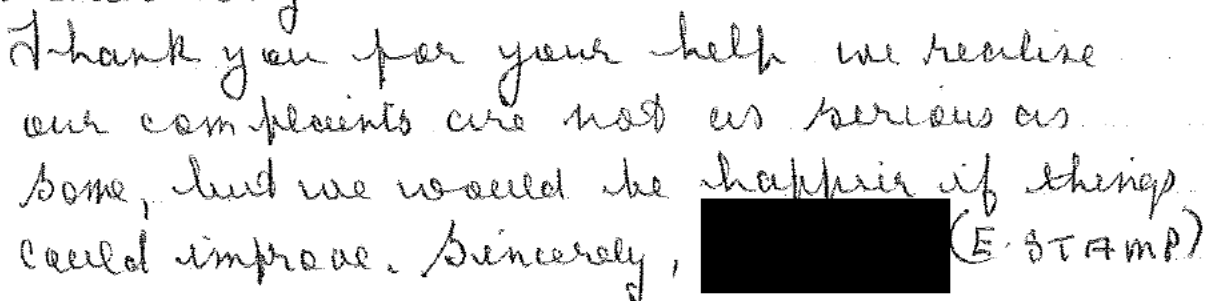 Thank you for your help we realise
our complaints are not as serious as
some, but we would be happier if things
could improve. Sincerely, (E. STAMP)